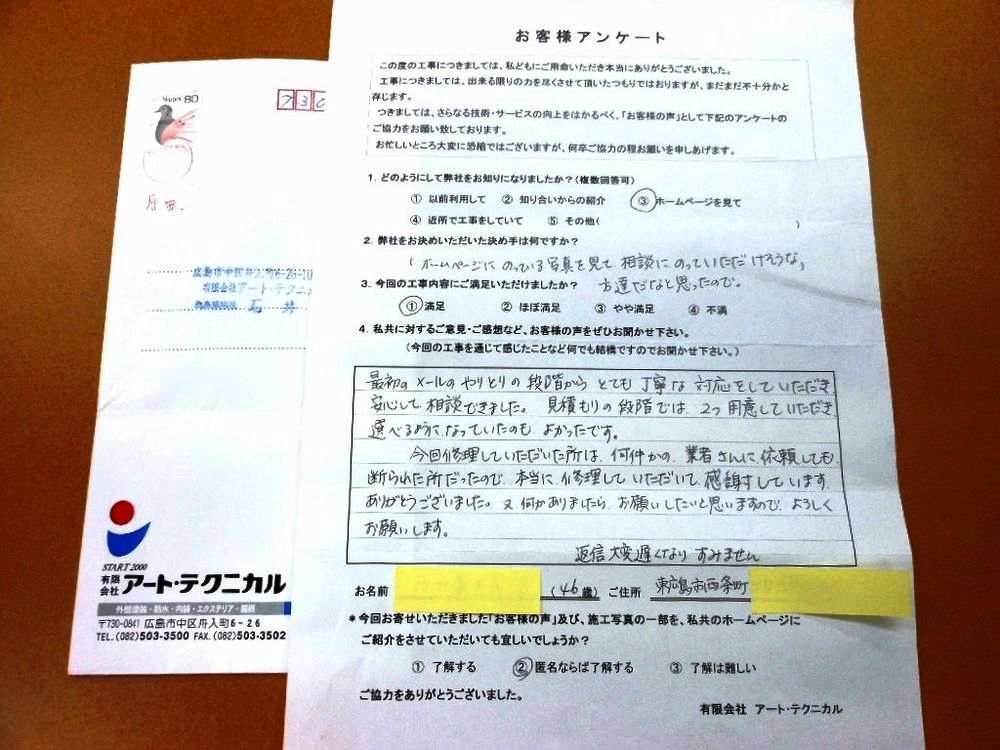 お客様アンケート
この度の工事につきましては、私どもにご用命いただき本当にありがとうございました。
工事につきましては、出来る限りの力を尽くさせて頂いたつもりではおりますが、まだまだ不十分かと
存じます。
つきましては、さらなる技術・サービスの向上をはかるべく、「お客様の声」として下記のアンケートの
ご協力をお願い致しております。
お忙しいところ大変に恐縮ではございますが、何卒ご協力の程お願いを申しあげます。
1. どのようにして弊社をお知りになりましたか?(複数回答可)
① 以前利用して ② 知り合いからの紹介 ③ ホームページを見て
④ 近所で工事をしていて ⑤ その他( )
2. 弊社をお決めいただいた決め手は何ですか?
( ホームページに のっている写真を見て 相談にのっていただけそうな,
方達だなと思ったので。
3. 今回の工事内容にご満足いただけましたか?
① 満足 ② ほぼ満足 ③ やや満足 ④ 不満
4. 私共に対するご意見・ご感想など、お客様の声をぜひお聞かせ下さい。
(今回の工事を通じて感じたことなど何でも結構ですのでお聞かせ下さい。)
最初の メールの やりとりの 段階から とても 丁寧な 対応をしていただき
安心して 相談できました。 見積もりの段階では、2つ 用意していただき
選べるようになっていたのも よかったです。
今回修理していただいた所は、何件かの 業者さんに依頼しても
断られた所だったので、本当に 修理していただいて、感謝しています。
ありがとうございました。又 何かありましたら お願いしたいと思いますので、よろしく
お願いします。
返信大変遅くなり すみません
お名前 (46歳) ご住所 東広島市西条町
*今回お寄せいただきました「お客様の声」及び、施工写真の一部を、私共のホームページに
ご紹介をさせていただいても宜しいでしょうか?
① 了解する ② 匿名ならば了解する ③ 了解は難しい
ご協力をありがとうございました。
有限会社 アート・テクニカル
Nippon 80
730
広島市中区舟入町6-26-10
有限会社アート・テクニカ
石井
START 2000
有限会社 アート・テクニカル
外壁塗装・防水・内装・エクステリア・屋根
〒730-0841 広島市中区舟入町6-26
TEL.(082)503-3500 FAX.(082)503-3502